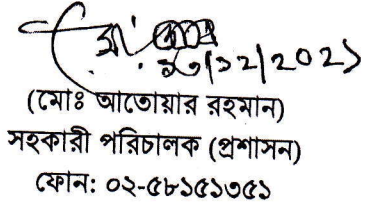 ১৩/১২/২০২১
(মোঃ আতোয়ার রহমান)
সহকারী পরিচালক (প্রশাসন)
ফোন: ০২-৫৮১৫১৩৫১